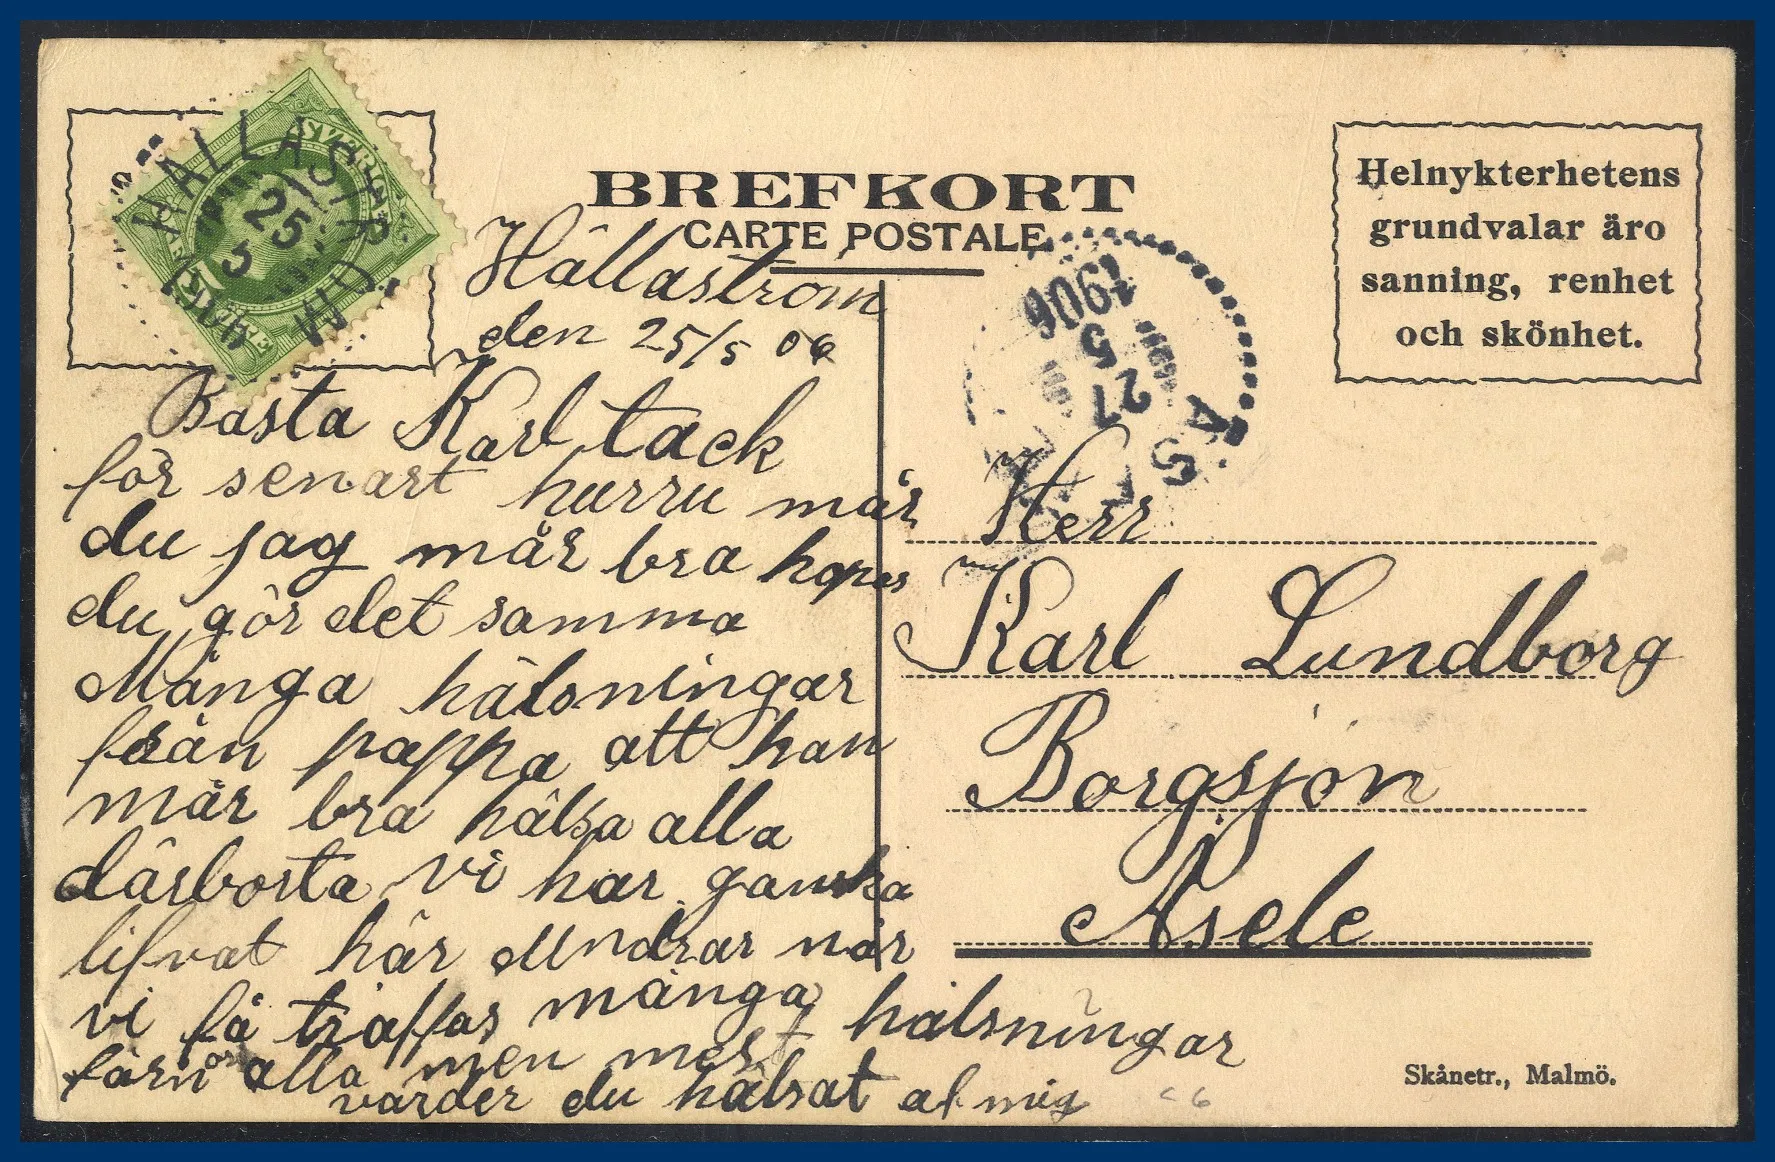 BREFKORT
CARTE POSTALE
Helnykterhetens
grundvalar äro
sanning, renhet
och skönhet.
HÄLLASTRÖM
25
5
1906
5
27
Hällaström
den 25/5 06
Basta Karl tack
för senart hurru mår
du jag mår bra hopes
du gör det samma
Många hälsningar
från pappa att han
mår bra hälsa alla
därborta vi har ganska
lifvat här Undrar når
vi få träffas många hälsningar
färn oss alla men mest
varder du hälsat af mig
Herr
Karl Lundborg
Borgsjön
Åsele
Skånetr., Malmö.